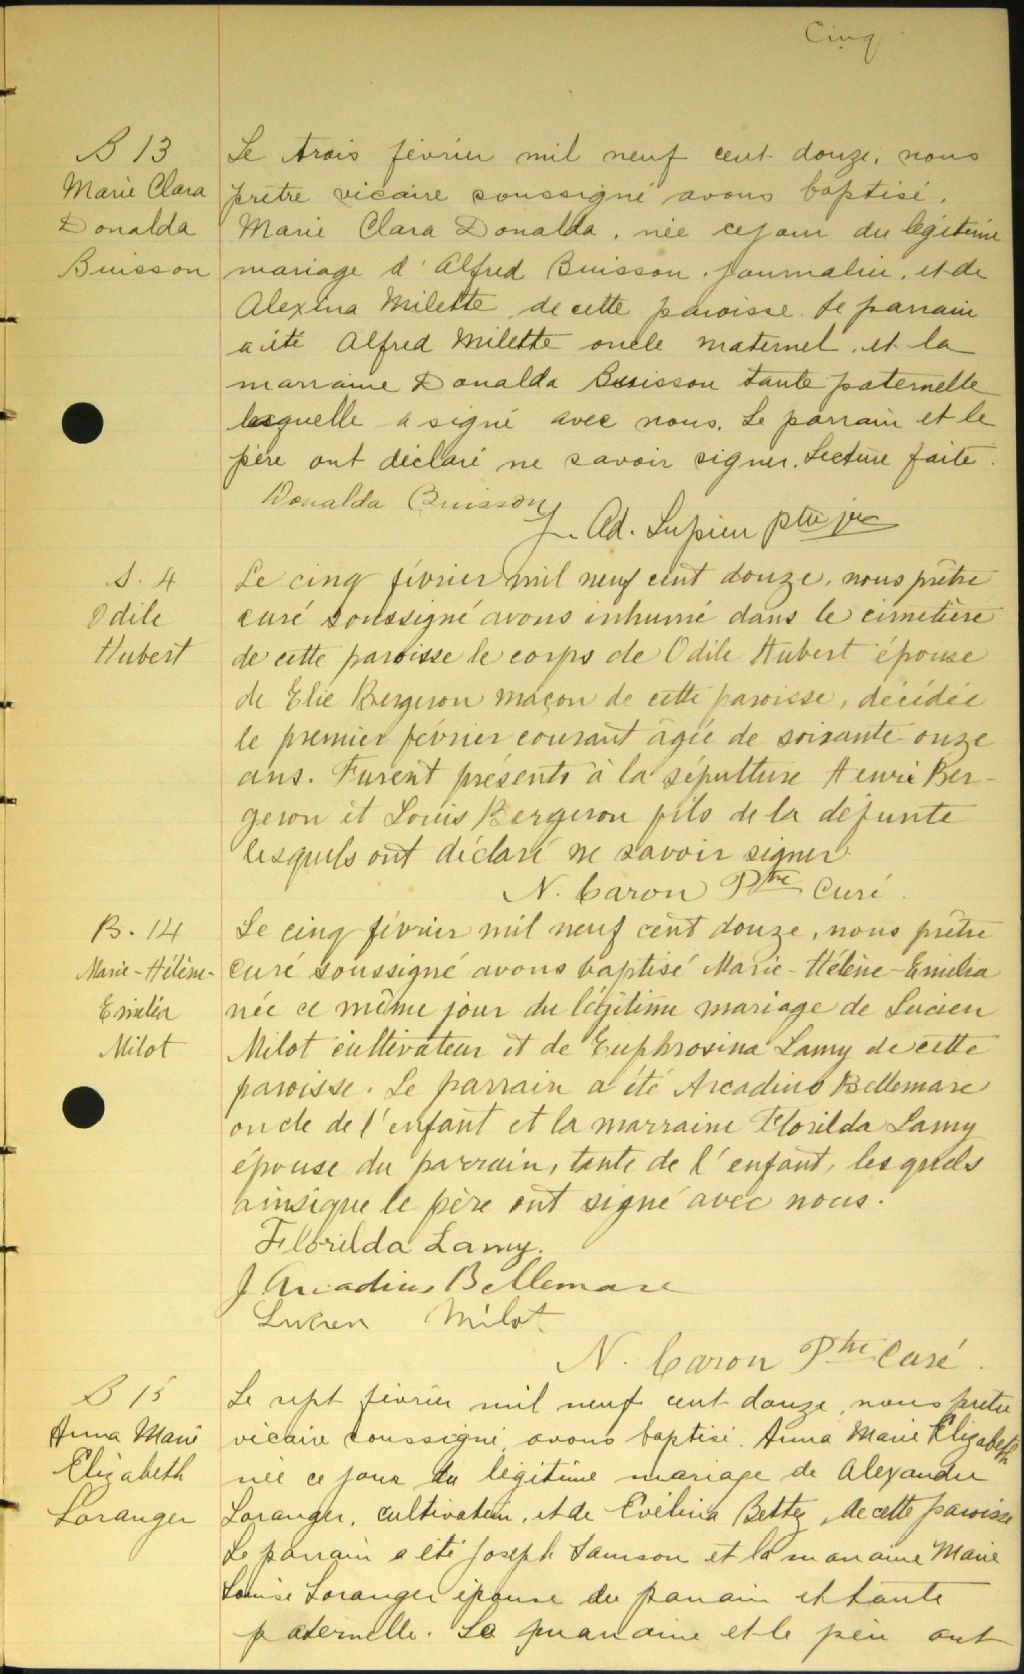 Cinq
B 13
Marie Clara
Donalda
Buisson
Le trois février mil neuf cent douze, nous
prêtre vicaire soussigné avons baptisé,
Marie Clara Donalda, née ce jour du légitime
mariage d'Alfred Buisson, journalier, et de
Alexina Milette de cette paroisse. Le parrain
a été Alfred Milette oncle maternel, et la
marraine Donalda Buisson tante paternelle
laquelle a signé avec nous. Le parrain et le
père ont déclaré ne savoir signer. Lecture faite.
Donalda Buisson
J. Ad. Lupien ptre vic
S. 4
Odile
Hubert
Le cinq février mil neuf cent douze, nous prêtre
curé soussigné avons inhumé dans le cimetière
de cette paroisse le corps de Odile Hubert épouse
de Elie Bergeron maçon de cette paroisse, décédée
le premier février courant âgée de soixante-onze
ans. Furent présents à la sépulture Henri Ber-
geron et Louis Bergeron fils de la défunte
lesquels ont déclaré ne savoir signer.
N. Caron Ptre Curé.
B. 14
Marie-Hélène-
Emilia
Milot
Le cinq février mil neuf cent douze, nous prêtre
curé soussigné avons baptisé Marie-Hélène-Emilia
née ce même jour du légitime mariage de Lucien
Milot cultivateur et de Euphrosina Lamy de cette
paroisse. Le parrain a été Arcadius Bellemare
oncle de l'enfant et la marraine Florilda Lamy
épouse du parrain, tante de l'enfant, lesquels
ainsi que le père ont signé avec nous.
Florilda Lamy.
J Arcadius Bellemare
Lucien Milot
N. Caron Ptre Curé.
B 15
Anna Marie
Elizabeth
Loranger
Le sept février mil neuf cent douze, nous prêtre
vicaire soussigné, avons baptisé Anna Marie Elizabeth
née ce jour du légitime mariage de Alexandre
Loranger, cultivateur, et de Evélina Bettez, de cette paroisse
Le parrain a été Joseph Samson et la marraine Marie
Louise Loranger épouse du parrain et tante
paternelle. La marraine et le père ont